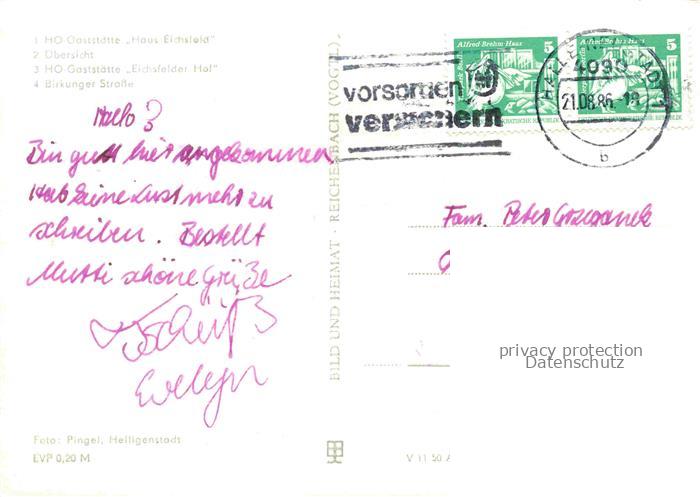 1 HO-Gaststätte „Haus Eichsfeld"
2 Übersicht
3 HO-Gaststätte „Eichsfelder Hof"
4 Birkunger Straße
Hallo 3
Bin gutt hier angekommen
Hab keine Lust mehr zu
schreiben. Bestellt
Mutti schöne Grüße
Tschüß
Evelyn
Foto: Pingel, Heiligenstadt
EVP 0,20 M
BILD UND HEIMAT · REICHENBACH (VOGTL.)
V 11 50 A
vorsorgen
versichern
Alfred-Brehm-Haus 5
Alfred-Brehm-Haus 5
HALLE-NEUSTADT
4090
21.08.86-18
b
Fam. Peter
privacy protection
Datenschutz